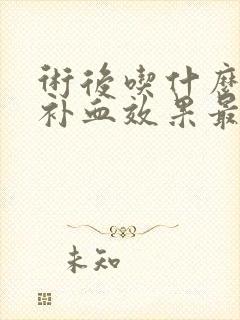 術後喫什麼
补血效果最
未知